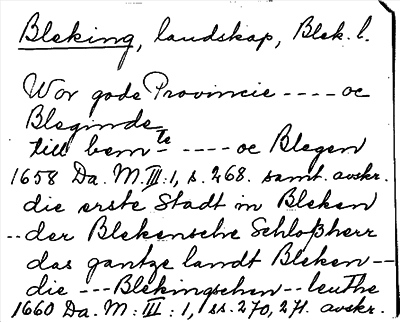 Bleking, landskap, Blek. l.
Wor gode Provincie ---- oc
Bleginde
till bemte ---- oc Blegen
1658 Da. M. III: 1, s. 268. samt. avskr.
die erste Stadt in Bleken
-- der Blekensche Schloßherr
das gantze landt Bleken --
die --- Blekingschen -- leuthe
1660 Da. M: III: 1, ss. 270, 271. avskr.